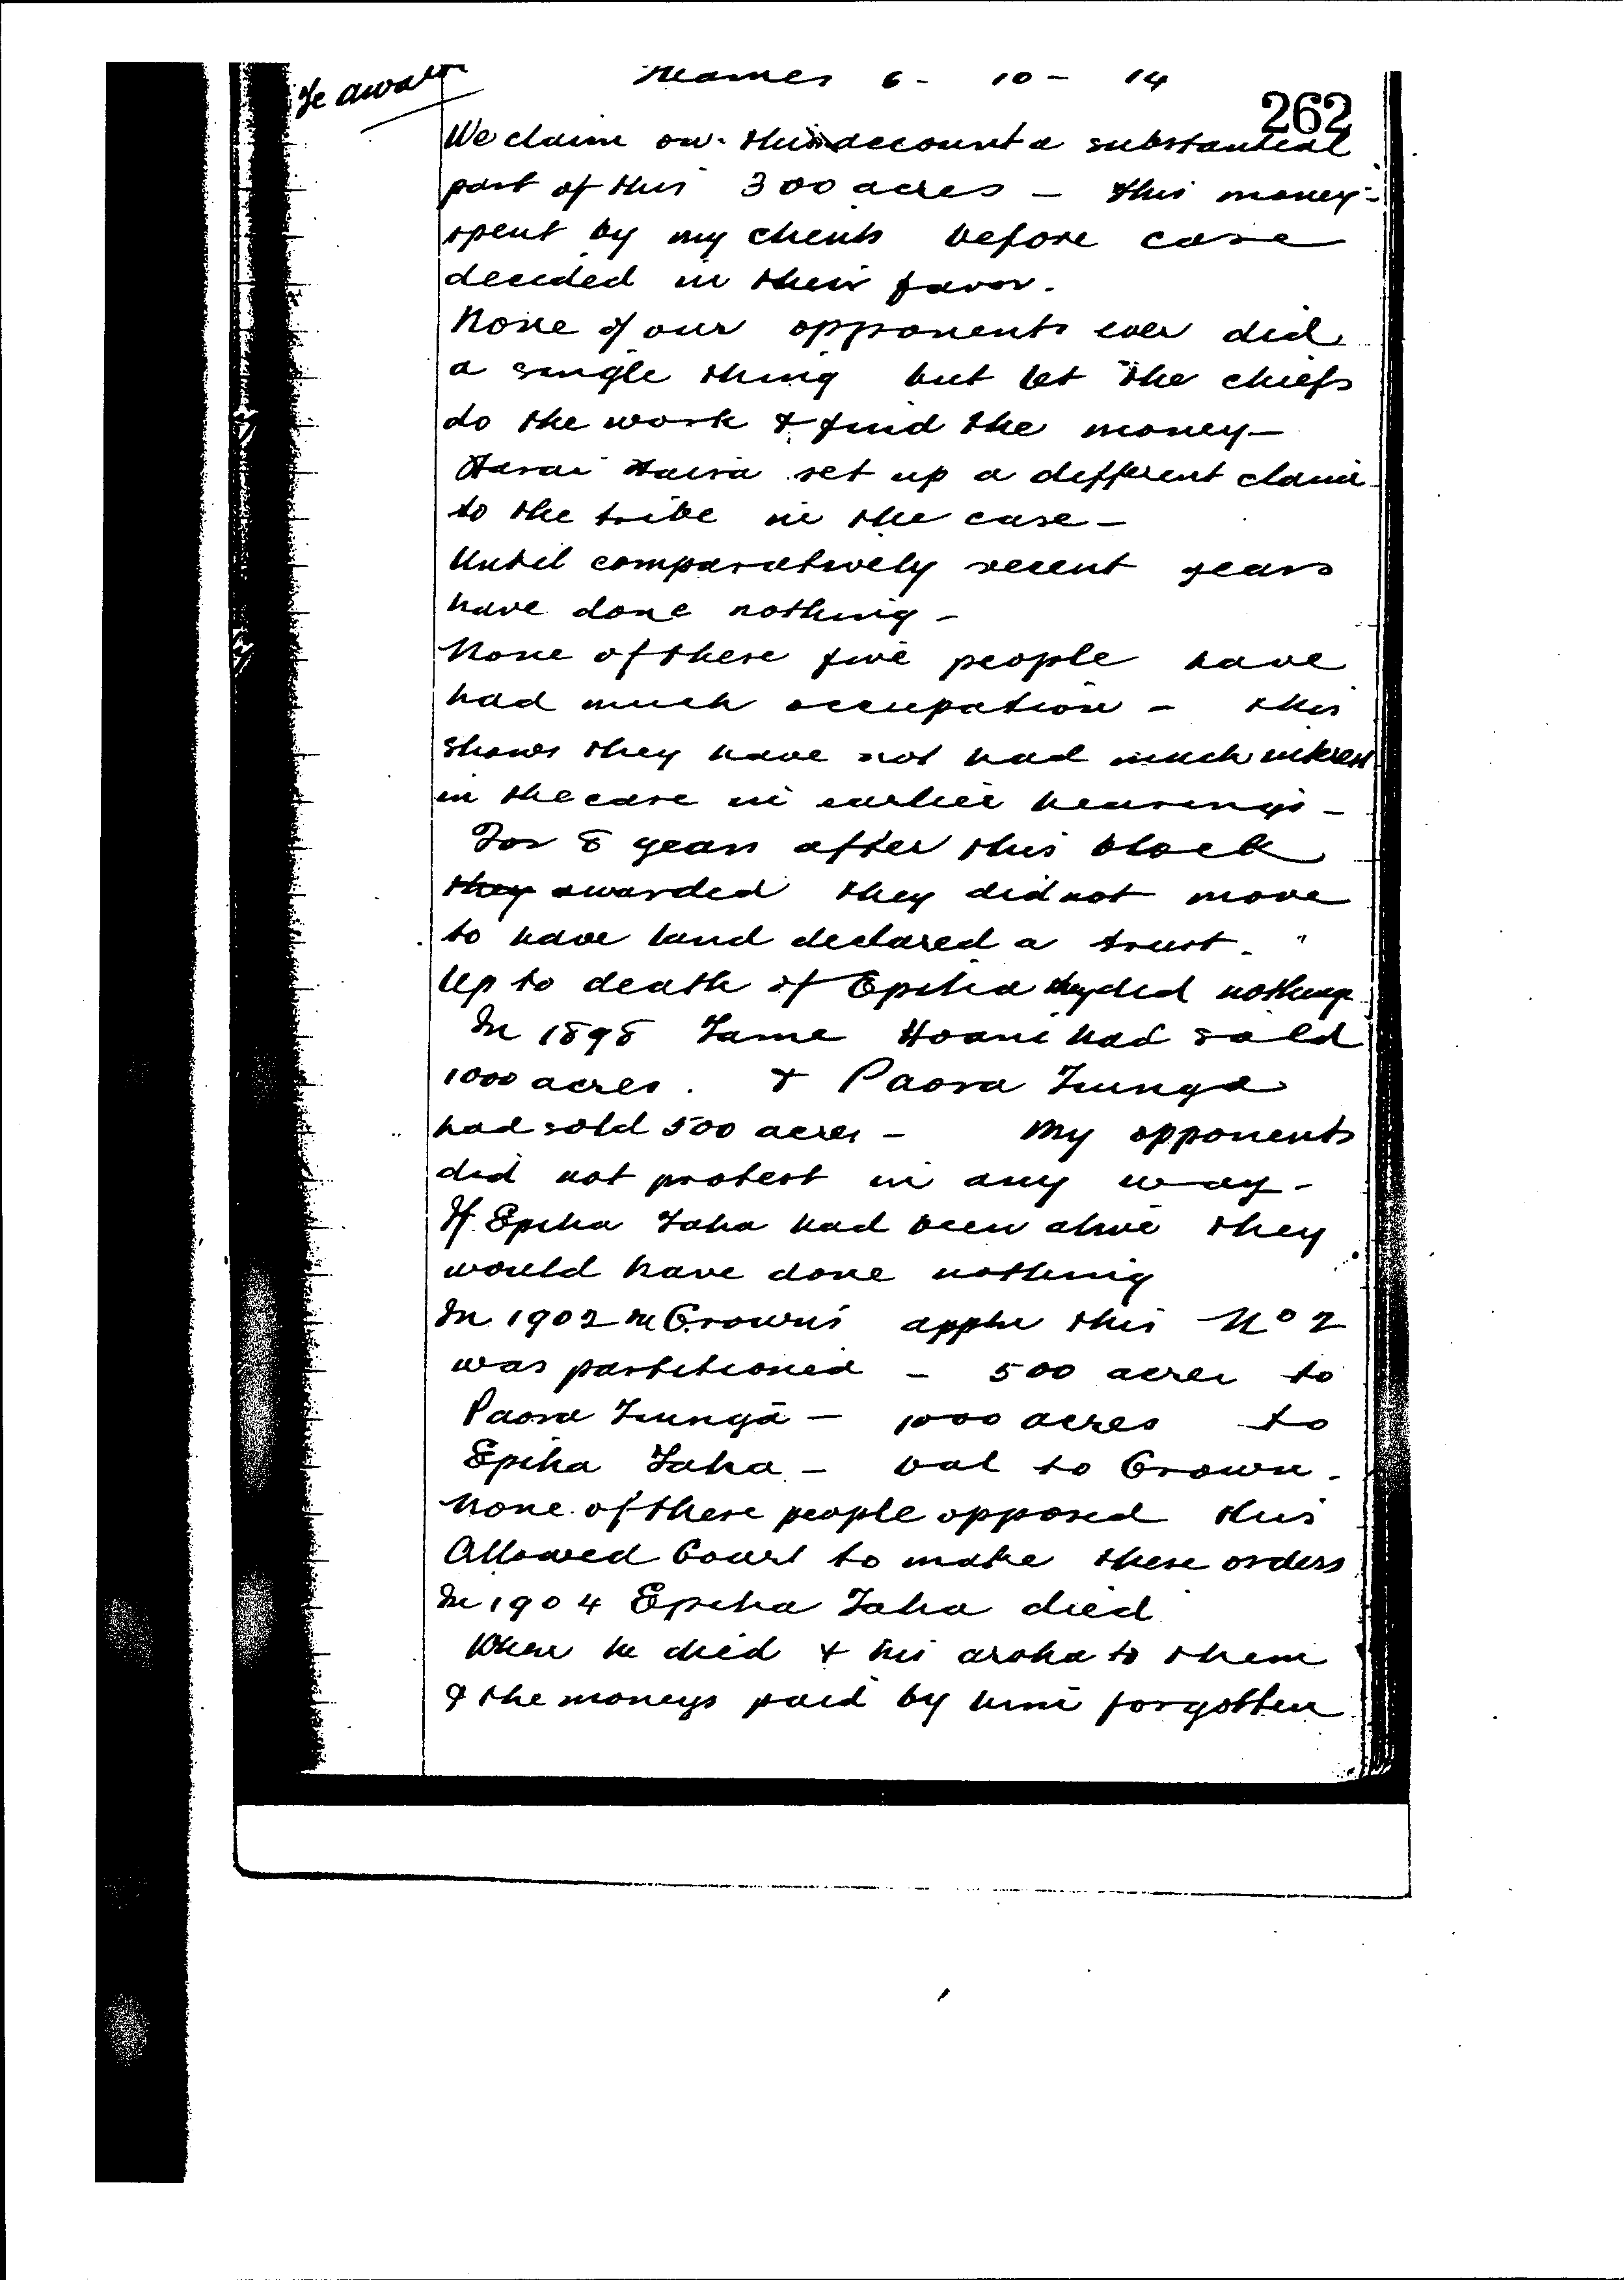 Te Awa
Thames 6 - 10 - 14
262
We claim on this account a substantial
part of this 300 acres - this money
spent by my clients before case
decided in their favor.
None of our opponents ever did
a single thing but let the chiefs
do the work & find the money -
Harai set up a different claim
to the tribe in the case -
Until comparatively recent years
have done nothing -
None of these five people have
had much occupation - this
shows they have not had much interest
in the case in earlier hearings -
For 8 years after this block
they awarded they did not move
to have land declared a trust.
Up to death of Epiha they did nothing
In 1898 Tame Hoani had sold
1000 acres. & Paora Tiunga
had sold 500 acres - My opponents
did not protest in any way -
If Epiha Taha had been alive they
would have done nothing
In 1902 on Crown's appln this No 2
was partitioned - 500 acres to
Paora Tiunga - 1000 acres to
Epiha Taha - bal to Crown.
None of these people opposed this
Allowed Court to make these orders
In 1904 Epiha Taha died
When he died & his aroha to them
& the moneys paid by him forgotten